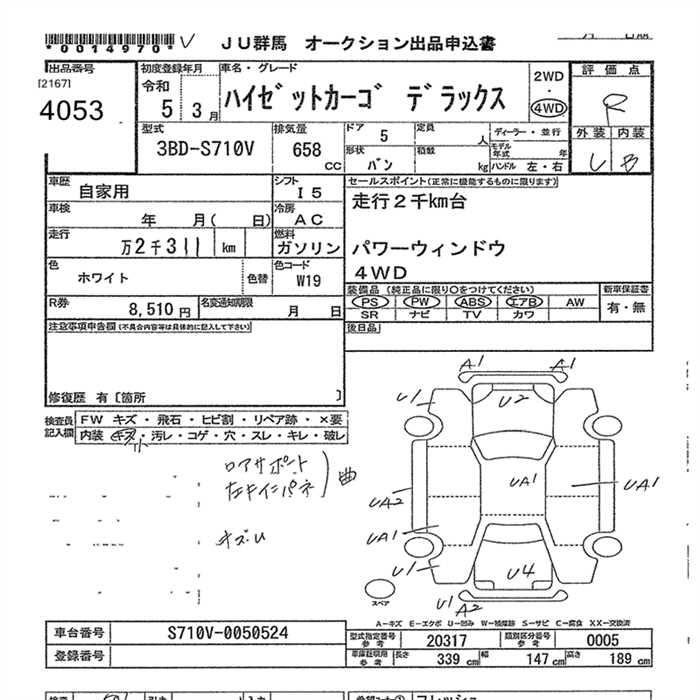 *0014970* V
JU群馬 オークション出品申込書
出品番号
[2167]
4053
初度登録年月
令和
5 3月
車名・グレード
ハイゼットカーゴ デラックス
2WD
4WD
評価点
R
外装 内装
U B
型式
3BD-S710V
排気量
658
CC
ドア
5
定員
人
ディーラー・並行
モデル年式 年
形状
バン
積数
kg
ハンドル 左・右
車歴
自家用
シフト
I5
車検
年 月( 日)
冷房
AC
走行
万2千311 km
燃料
ガソリン
色
ホワイト
色替
色コード
W19
R券
8,510円
名変通知期限
月 日
セールスポイント(正常に機能するものに限ります)
走行2千km台
パワーウィンドウ
4WD
装備品(純正品に限り○をつけてください)
PS PW ABS エアB AW
SR ナビ TV カワ
新車保証書
有・無
後日品
注意事項申告欄(不具合内容等は具体的に記入して下さい)
修復歴 有〔箇所 〕
検査員
記入欄
FW キズ・飛石・ヒビ割・リペア跡・×要
内装 キズ・汚レ・コゲ・穴・スレ・キレ・破レ
小
ロアサポート
曲
キズU
A1 A1
U1 U2 U1
UA1
UA2 UA1
UA1
U1 U4 U1
U1 A2
スペア
A-キズ E-エクボ U-凹み W-補修跡 S-サビ C-腐食 XX-交換済
車台番号
S710V-0050524
登録番号
型式指定番号
参考
20317
類別区分番号
参考
0005
車庫証明用
参考
長さ
339 cm
幅
147 cm
高さ
189 cm